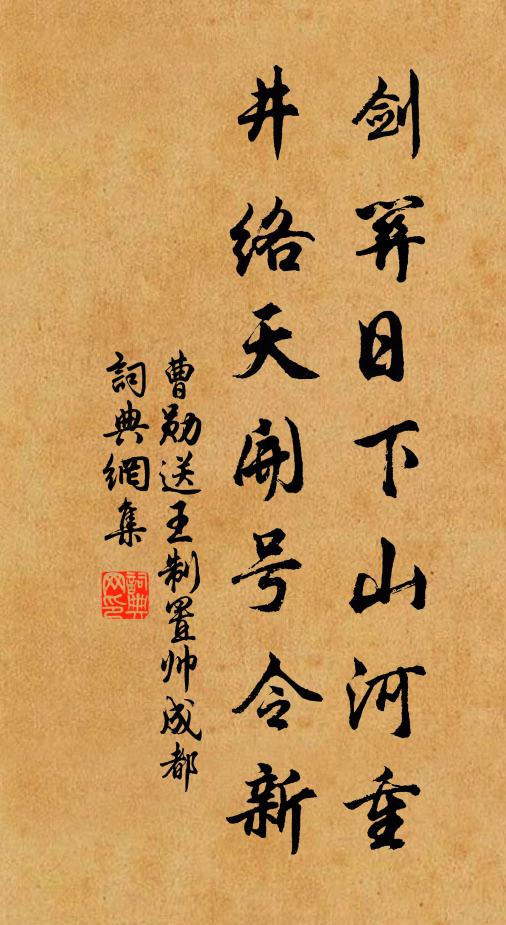 剑关日下山河重
井络天开号令新
曹勋送王制置帅成都
詞典網集
詞典网印